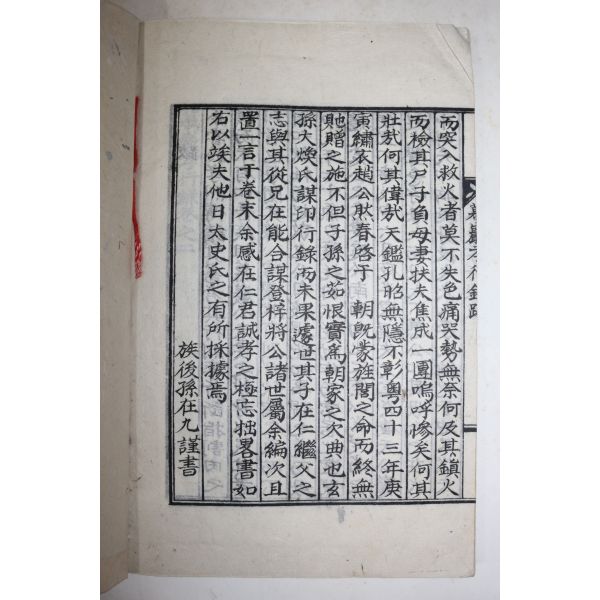 而哭入救火者莫不失色痛哭勢無奈何及其鎮火
而檢其尸子負母妻扶夫焦成一團嗚呼慘矣何其
壯哉何其偉哉天鑑孔昭無隱不彰粤四十三年庚
寅繡衣趙公然春啓于 朝旣蒙旌閭之命而終無
貤贈之施不但子孫之茹恨實爲朝家之欠典也玄
孫大煥氏謀印行錄而未果遽世其子在仁繼父之
志與其從兄在能合謀登梓將公諸世屬余編次且
置一言于卷末余感在仁君誠孝之極忘拙畧書如
右以竢夫他日太史氏之有所採據焉
族後孫在九謹書